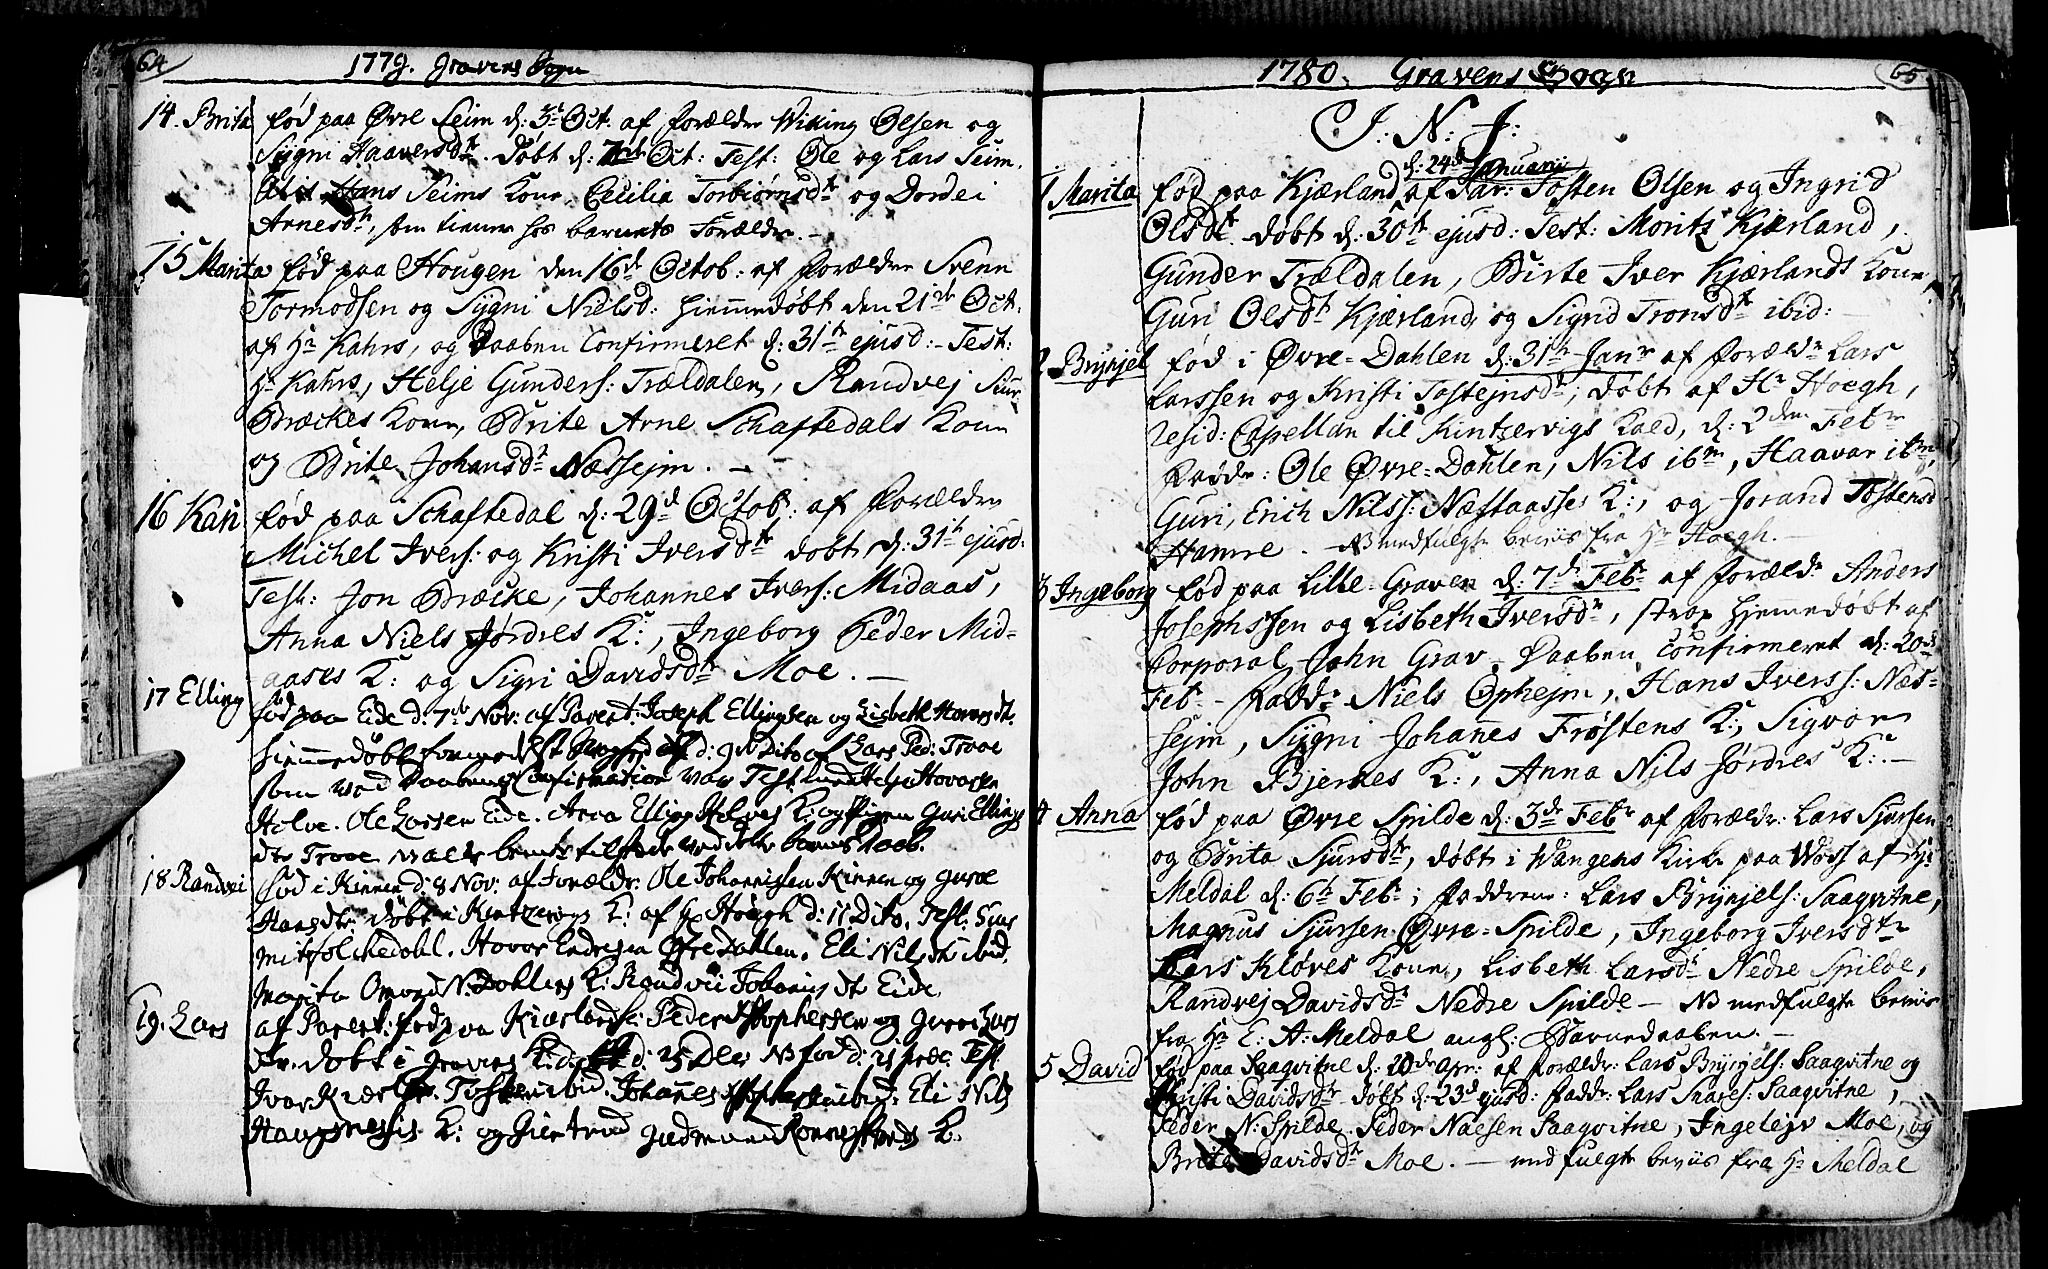 64
1779. Gravens Sogn
14. Brita fød paa Øvre Seim d: 3d Oct. af forældre Wiking Olsen og
Sygni Haaversdtr. Døbt d: Oct: Test: Ole og Lars Seim.
Hans Seims Kone, Cecilia Torbiørnsdtr og Dordei
Arnesdtr, som tiener hos barnets Forældre. -
15 Marita fød paa Hougen den 16d Octob: af forældre Svenn
Tormodsen og Sygni Nielsd: hiemmedøbt den 21de Oct:
af Hr Kahrs, og Daaben Confirmeret d: 31te ejusd: - Test:
Hr Kahrs, Helje Gunders: Trældalen, Randvej
Bræckes Kone, Brite Arne Schaftedals Kone
og Brite Johansdr Næssejm. -
16 Kari fød paa Schaftedal d: 29d Octob: af Forældre
Michel Ivers: og Kristi Iversdtr døbt d: 31te ejusd:
Test: Jon Bræcke, Johannes Ivers: Midaas,
Anna Niels Jørdres K:, Ingeborg Peder Mid=
aases K: og Sigri Davidsdtr Moe. -
17 Elling fød paa Eide d: 7de Nov: af Parent: Joseph Ellingsen og Lisbeth Haversdtr.
hiemmedøbt d: 9de Dito af Lars Ped: Trooe
som ved Daabens Confirmation var Test. med Helje Hovorsen
Helve. Ole Larsen Eide. Anna Elling Helves K: og Pigen Guri Ellings
dtr Trooe
18 Randvei fød i Kinnen d: 8 Nov: af Forældr: Ole Johannissen Kinnen og Guroe
Hansdtr. døbt i Kintzervigs K: af Hr Høegh d: 11 Dito. Test:
Havor Endresen Øvre Dahlen. Eli Nilsdtr ibid.
Marita Omund N: Dahlens K: Randvei Johannisdtr Eide
19. Lars af Parent: fød paa Kiærland: Peder Christophersen og Guroe Lars
dtr. døbt i Gravens K: d: 25 Dec: NB fød d: 21 præc. Test.
Ivar Kiærland. Tosten ibid. Johannes ibid: Eli Nils
K: og Giertrud Gudmund K.
65
1780. Gravens Sogn
J. N. J:
d: 24de Januarii
1 Marita fød paa Kjærland af Par: Tosten Olsen og Ingrid
Olsdtr. døbt d: 30te ejusd: Test: Moritz Kjærland,
Gunder Trældalen, Birte Iver Kjærlands Kone,
Guri Olsdtr Kjærland, og Sigrid Tronsdtr ibid: -
2 Brynjel fød i Øvre-Dahlen d: 31te Janr af forældr Lars
Larssen og Kristi Tostejnsdr, døbt af Hr Høegh,
resid: Capellan til Kintzervigs Kald, d: 2den Febr
Faddr: Ole Øvre-Dahlen, Nils ibm, Haavar ibm,
Guri, Erich Nilss: Næstaasses K:, og Jorand Tostensd
Hamre. - NB medfulgte beviis fra Hr Høegh. -
3 Ingeborg fød paa Lille-Graven d: 7de Febr af forældr Anders
Josephssen og Lisbeth Iversdr, strax hjemmedøbt af
Corporal John Grav - Daaben Confirmeret d: 20de
Feb - Faddr Niels Ophejm, Hans Iverss: Næs=
sejm, Sygni Johannes Frøstens K:, Sigvor
John Bjernes K:, Anna Nils Jørdres K: -
4 Anna fød paa Øvre Spilde d: 3de Febr af forældr: Lars Sjursen
og Brita Sjursdtr, døbt i Wangens Kirke paa Woss af Hr
Meldal d: 6te Febr; Faddrene: Lars Brynjels: Saaqvitne,
Magnus Sjursen Øvre-Spilde, Ingeborg Iversdtr
Lars Kløves Kone, Lisbeth Larsdr Nedre Spilde,
Randvej Davidsdr Nedre Spilde - NB medfulgte beviis
fra Hr E. A. Meldal angl: Barnedaaben. -
5 David fød paa Saaqvitne d: 20de Apr: af forældr: Lars Brynjels: Saaqvitne og
Kristi Davidsdtr - døbt d: 23d ejusd: Faddr: Lars Snares: Saaqvitne,
Peder N: Spilde. Peder Saaqvitne, Ingelejv Moe, og
Brita Davidsdtr Moe. - medfulgte beviis fra Hr Meldal